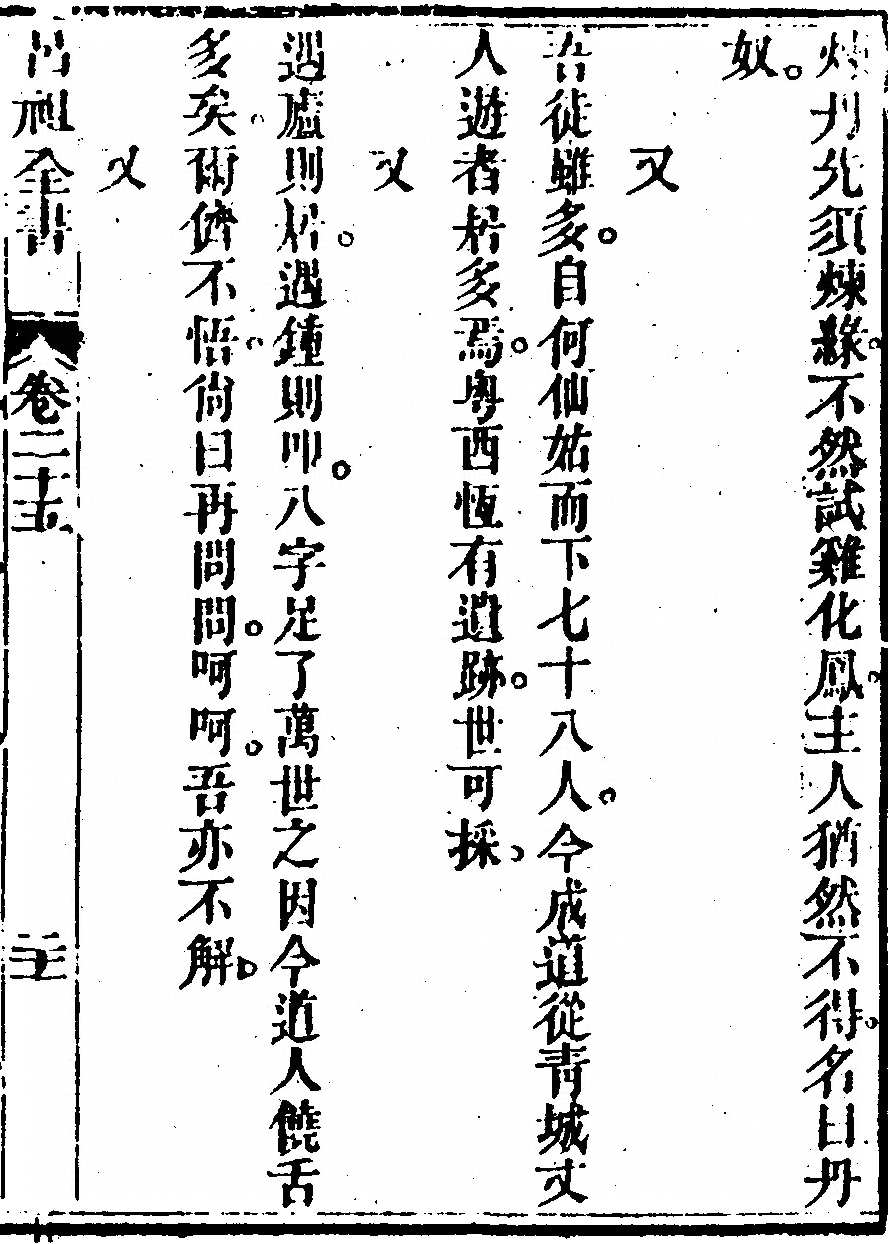 煉丹先須煉緣不然試雞化鳳主人猶然不得名曰丹
奴。
又
吾徒雖多。自何仙姑而下七十八人。今成道從青城丈
人遊者居多焉。粵西恆有遺跡。世可採。
又
遇廬則居。遇鍾則叩。八字足了萬世之因今道人饒舌
多矣。爾儕不悟。尙曰再問問。呵呵。吾亦不解。
又
呂祖全書 卷二十五